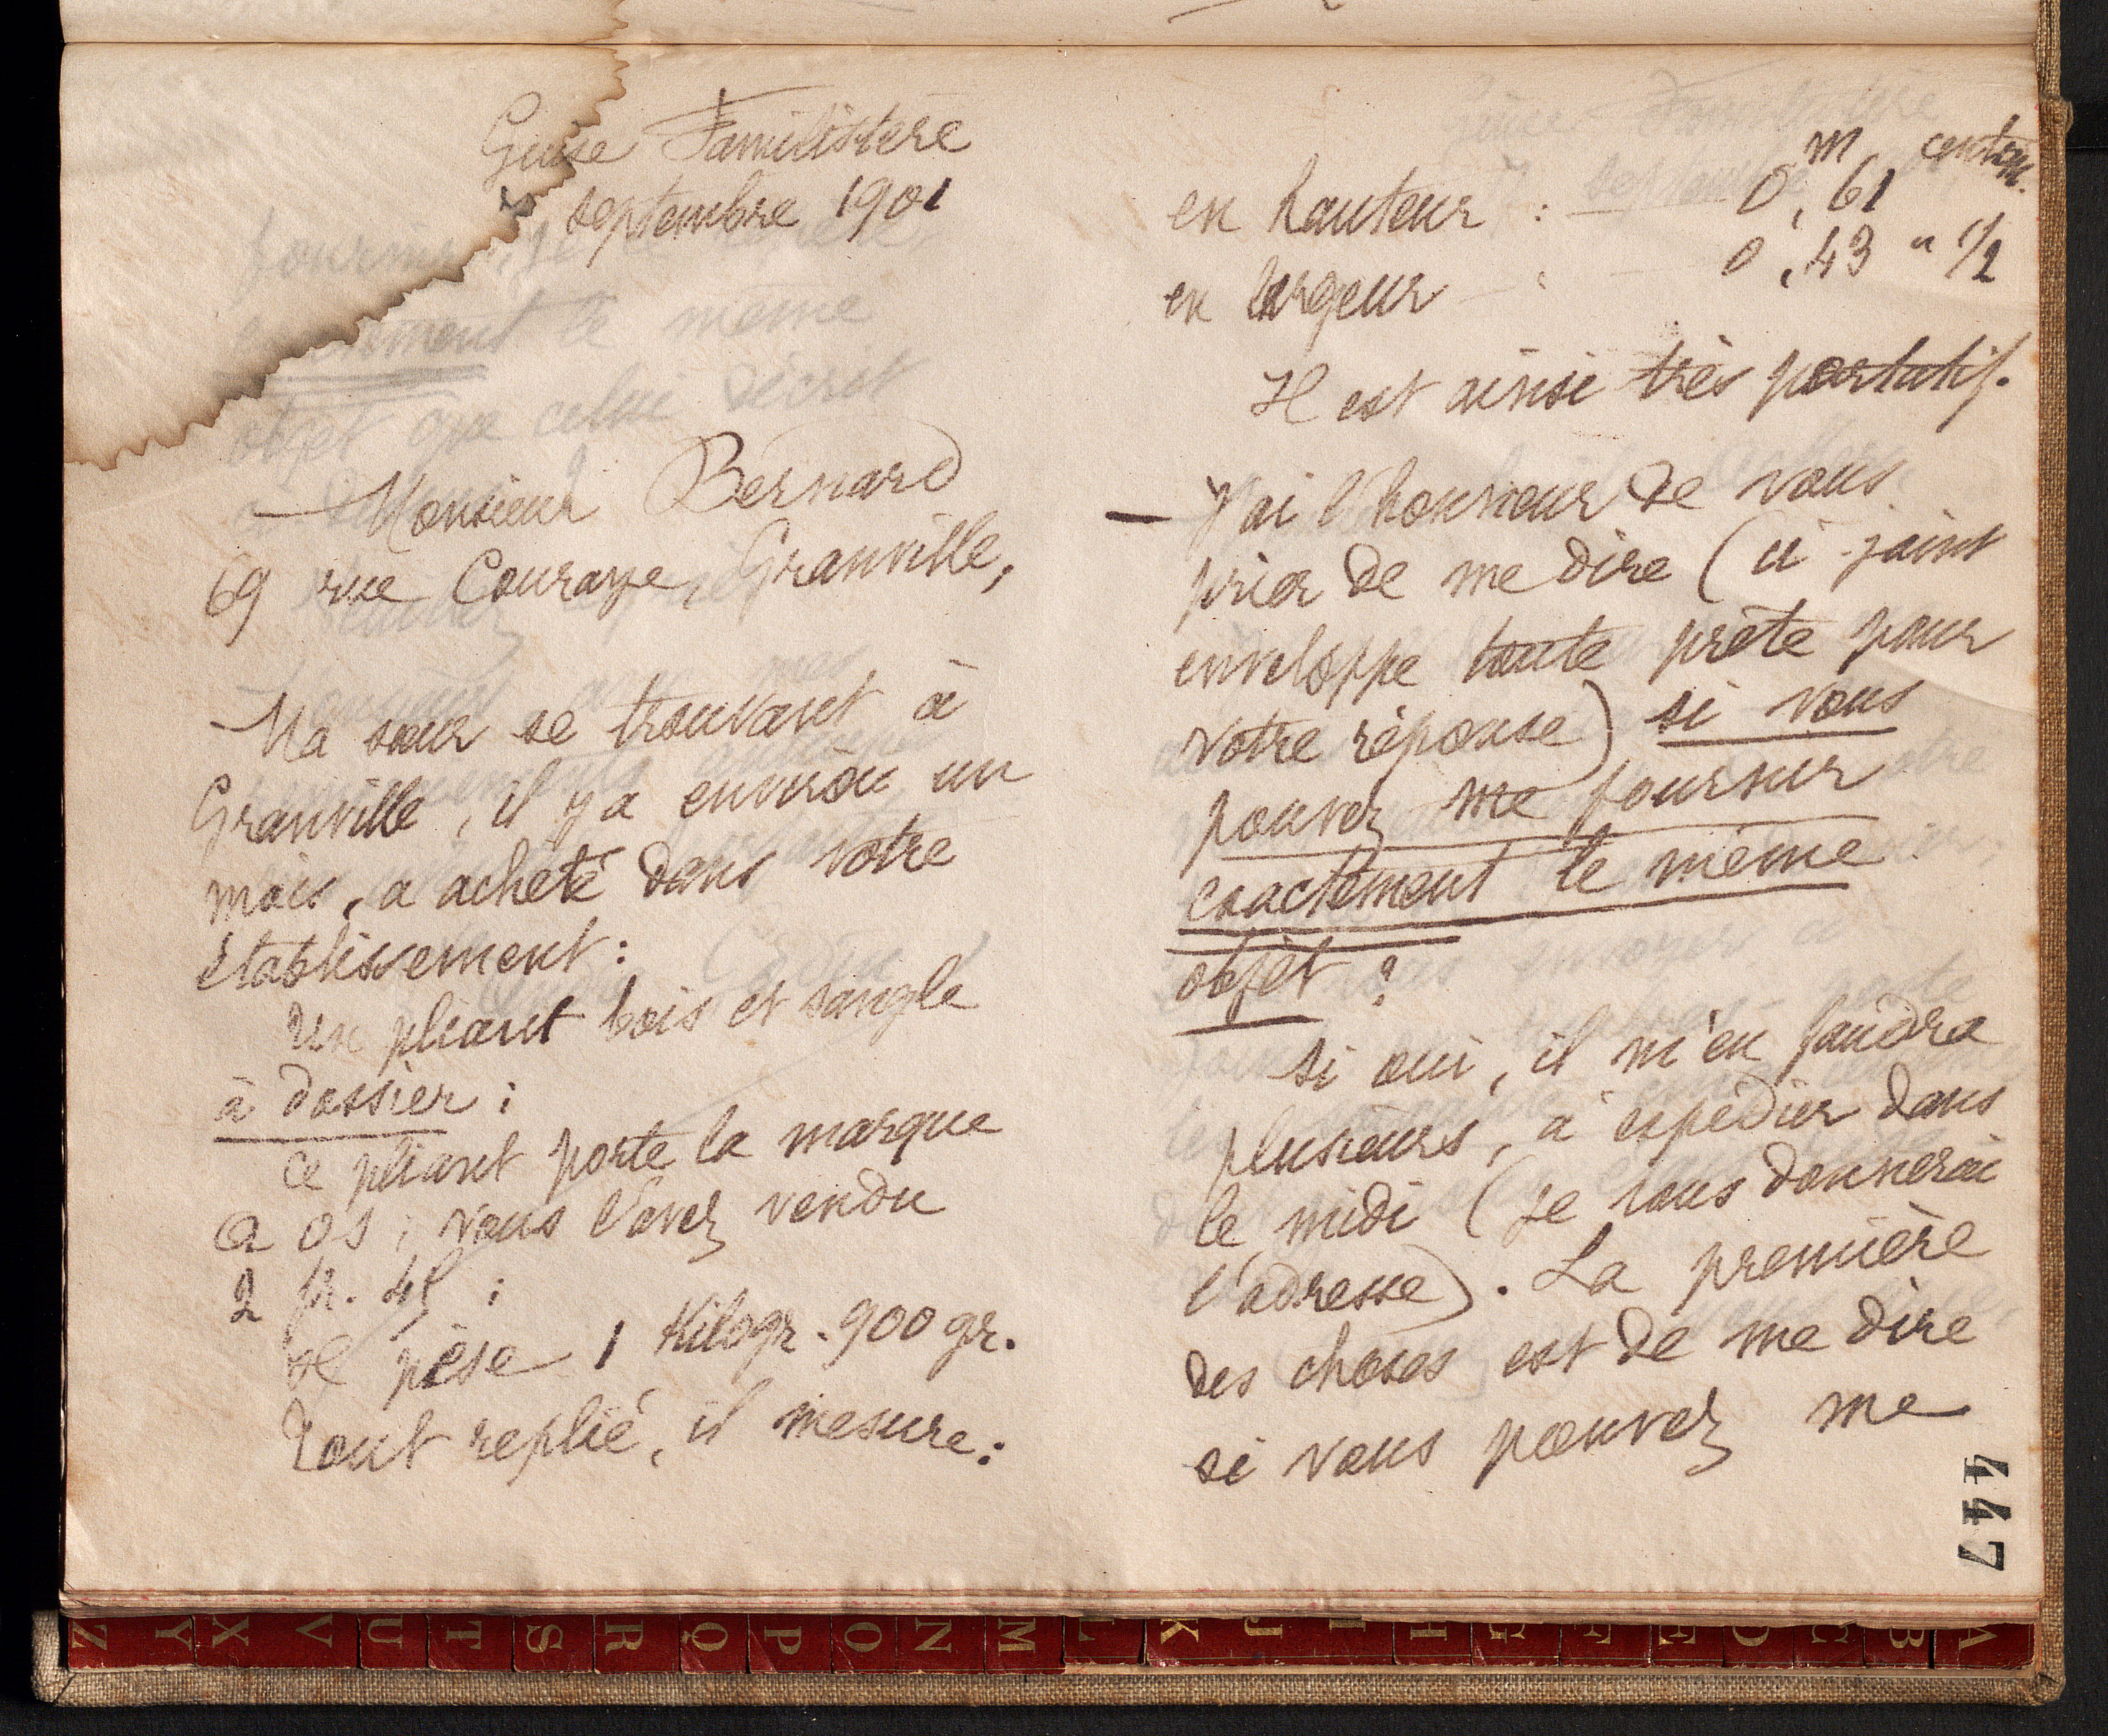 Guise Familistère
septembre 1901
Monsieur Bernard
69 rue Couraye, Granville,
Ma sœur se trouvant à
Granville, il y a environ un
mois, a acheté dans votre
établissement :
Un pliant bois et sangle
à dossier ;
Ce pliant porte la marque
a os ; vous l'avez vendu
2 fr. 45 ;
Il pèse 1 Kilogr. 900 gr.
Tout replié, il mesure :
en hauteur : 0m, 61 centim.
en largeur : 0, 43 " 1/2
Il est ainsi très portatif.
— J'ai l'honneur de vous
prier de me dire (ci-joint
enveloppe toute prête pour
votre réponse) si vous
pouvez me fournir
exactement le même
objet ?
Si oui, il m'en faudra
plusieurs, à expédier dans
le midi (je vous donnerai
l'adresse). La première
des choses est de me dire
si vous pouvez me
447
Z Y X V U T S R Q P O N M L K J I H G F E D C B A